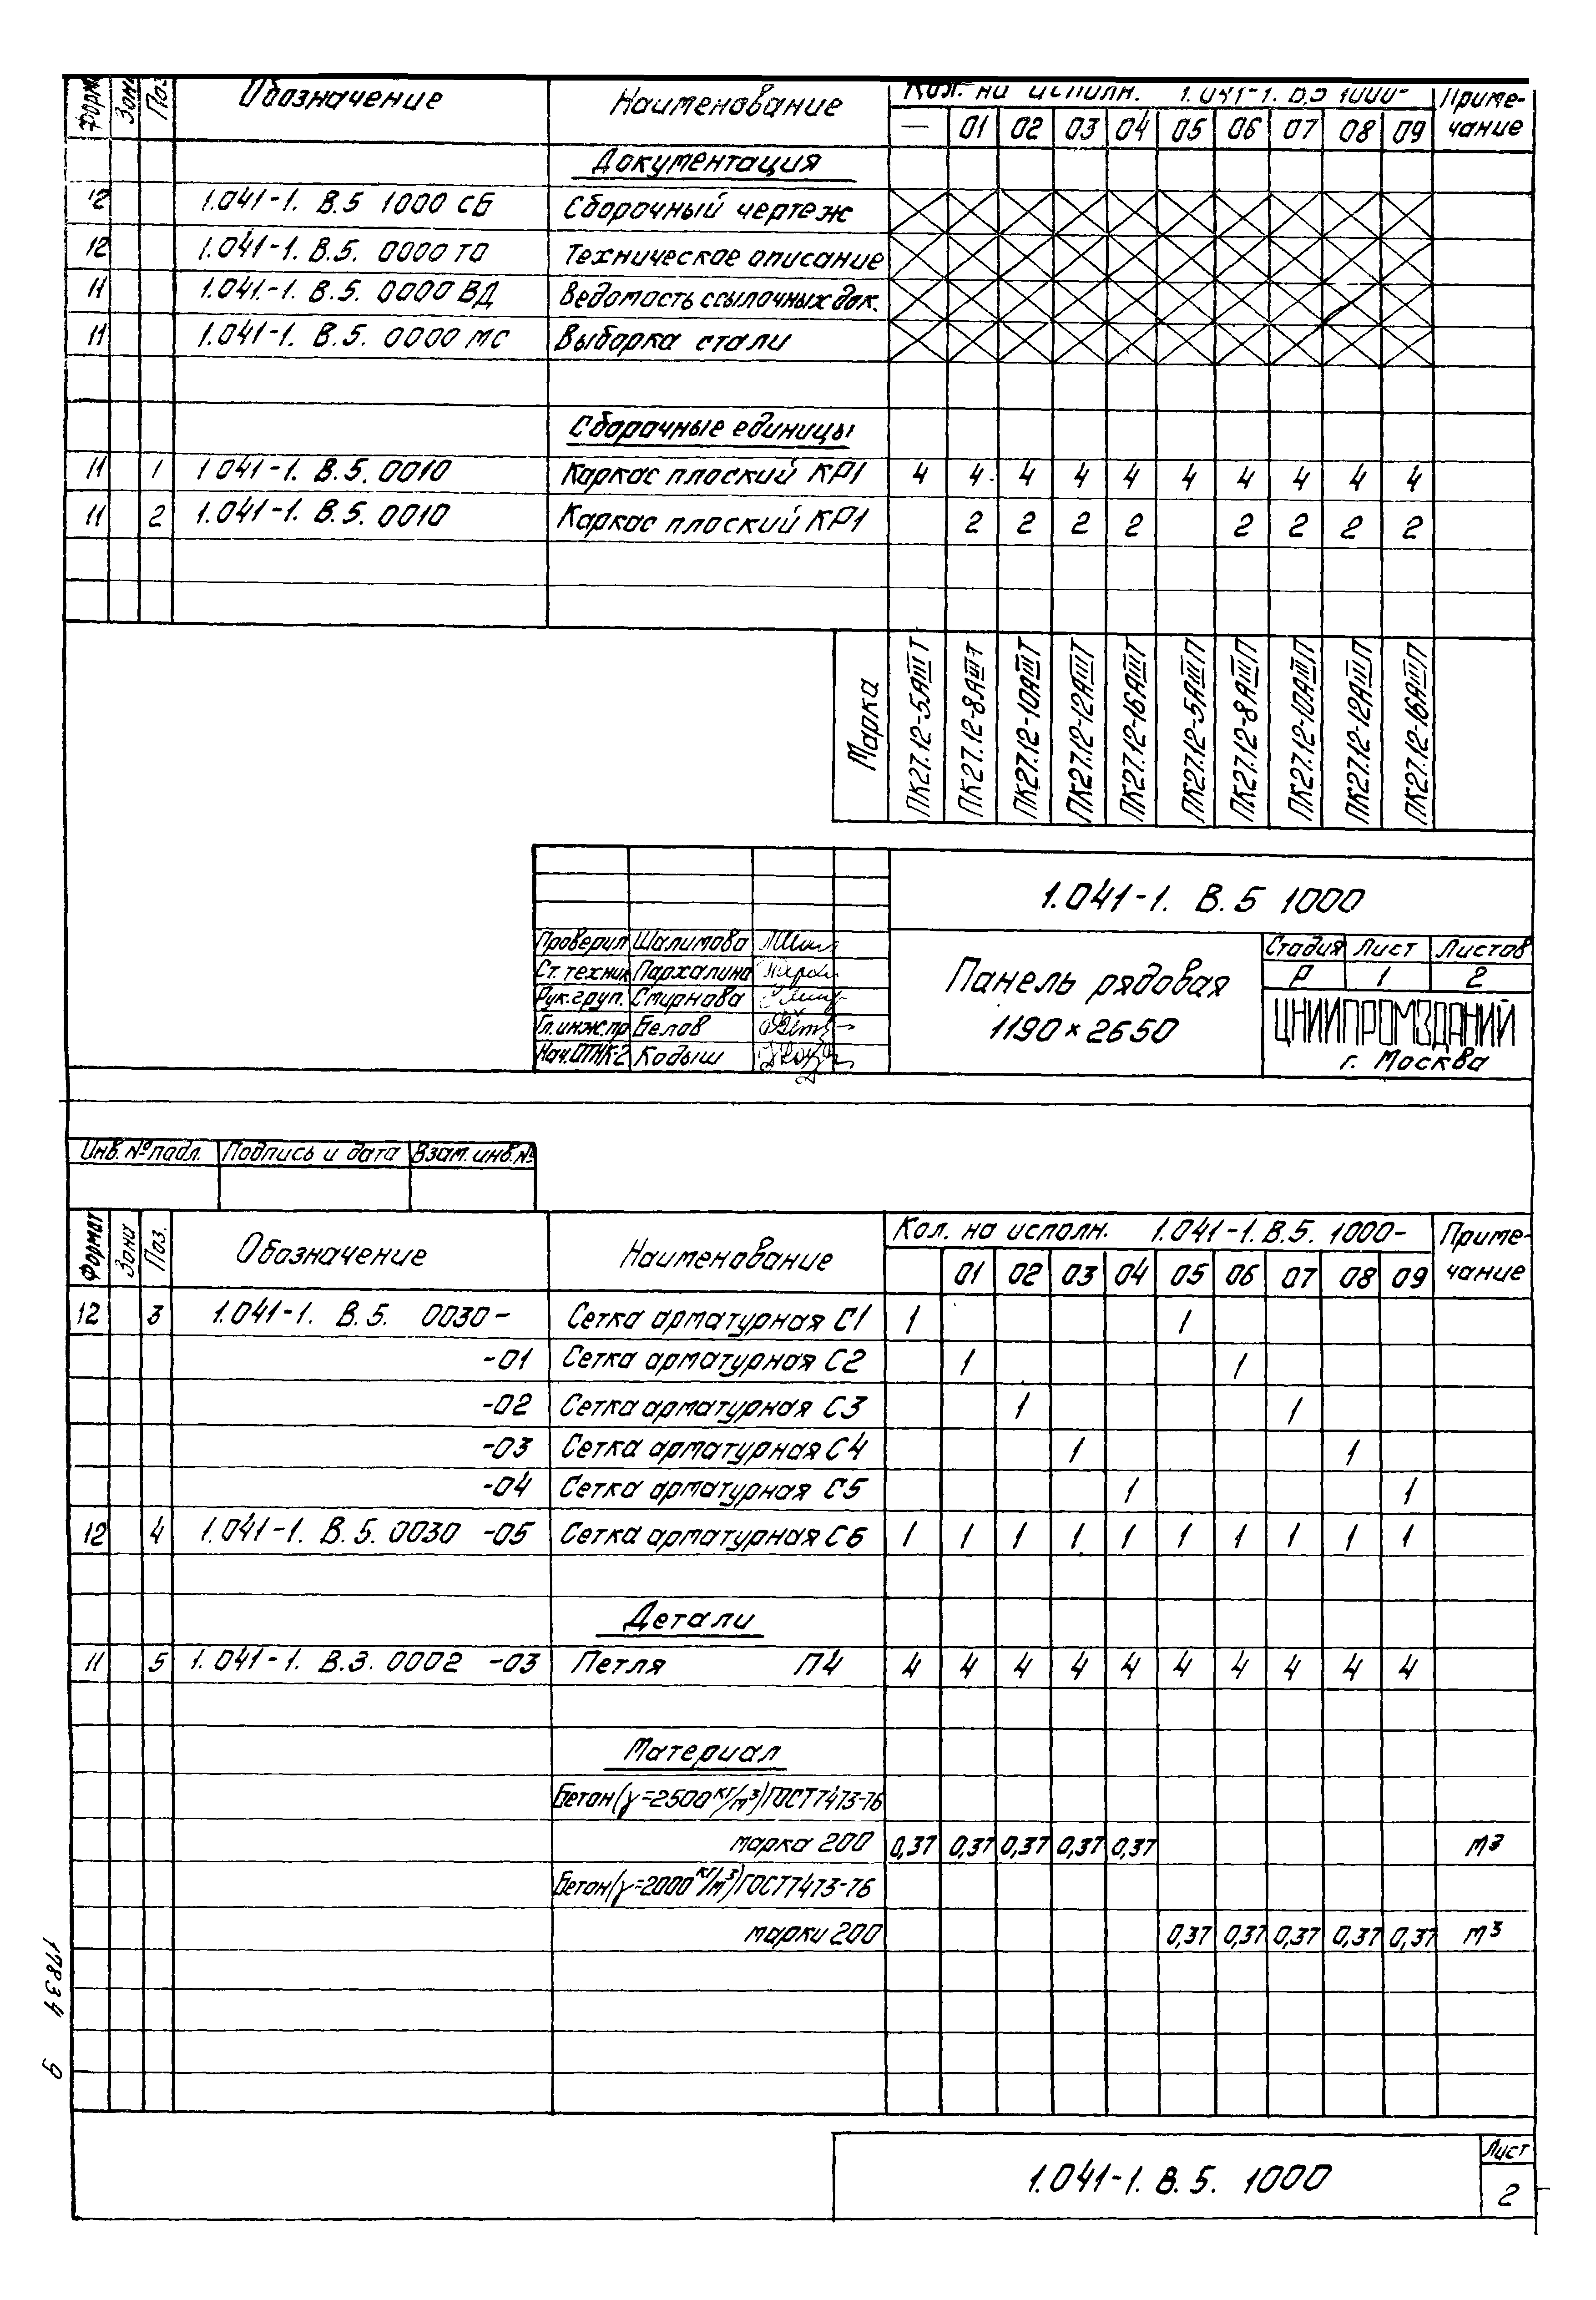 Форм. Зона Поз. Обозначение Наименование Кол. на исполн. 1.041-1. В.5 1000- Приме-
чание
— 01 02 03 04 05 06 07 08 09
Документация
12 1.041-1. В.5 1000 СБ Сборочный чертеж
12 1.041-1. В.5. 0000 ТО Техническое описание
11 1.041-1. В.5. 0000 ВД Ведомость ссылочных док.
11 1.041-1. В.5. 0000 МС Выборка стали
Сборочные единицы
11 1 1 041-1. В.5. 0010 Каркас плоский КР1 4 4 4 4 4 4 4 4 4 4
11 2 1.041-1. В.5. 0010 Каркас плоский КР1 2 2 2 2 2 2 2 2
Марка ПК27.12-5АШТ ПК27.12-8АШТ ПК27.12-10АШТ ПК27.12-12АШТ ПК27.12-16АШТ ПК27.12-5АШП ПК27.12-8АШП ПК27.12-10АШП ПК27.12-12АШП ПК27.12-16АШП
1.041-1. В.5 1000
Проверил Шалимова
Ст. техник Пархалина
Рук. груп. Смирнова
Гл.инж.пр Белов
Нач.ОТМК-2 Кодыш
Панель рядовая
1190×2650
Стадия Лист Листов
Р 1 2
ЦНИИПРОМЗДАНИЙ
г. Москва
Инв. № подл. Подпись и дата Взам. инв. №
Формат Зона Поз. Обозначение Наименование Кол. на исполн. 1.041-1. В.5. 1000- Приме-
чание
01 02 03 04 05 06 07 08 09
12 3 1.041-1. В.5. 0030- Сетка арматурная С1 1 1
-01 Сетка арматурная С2 1 1
-02 Сетка арматурная С3 1 1
-03 Сетка арматурная С4 1 1
-04 Сетка арматурная С5 1 1
12 4 1.041-1. В.5. 0030 -05 Сетка арматурная С6 1 1 1 1 1 1 1 1 1 1
Детали
11 5 1.041-1. В.3. 0002 -03 Петля П4 4 4 4 4 4 4 4 4 4 4
Материал
Бетон(γ=2500кг/м³)ГОСТ7473-76
марка 200 0,37 0,37 0,37 0,37 0,37 м³
Бетон(γ=2000кг/м³)ГОСТ7473-76
марки 200 0,37 0,37 0,37 0,37 0,37 м³
17834 9
1.041-1. В.5. 1000
Лист
2